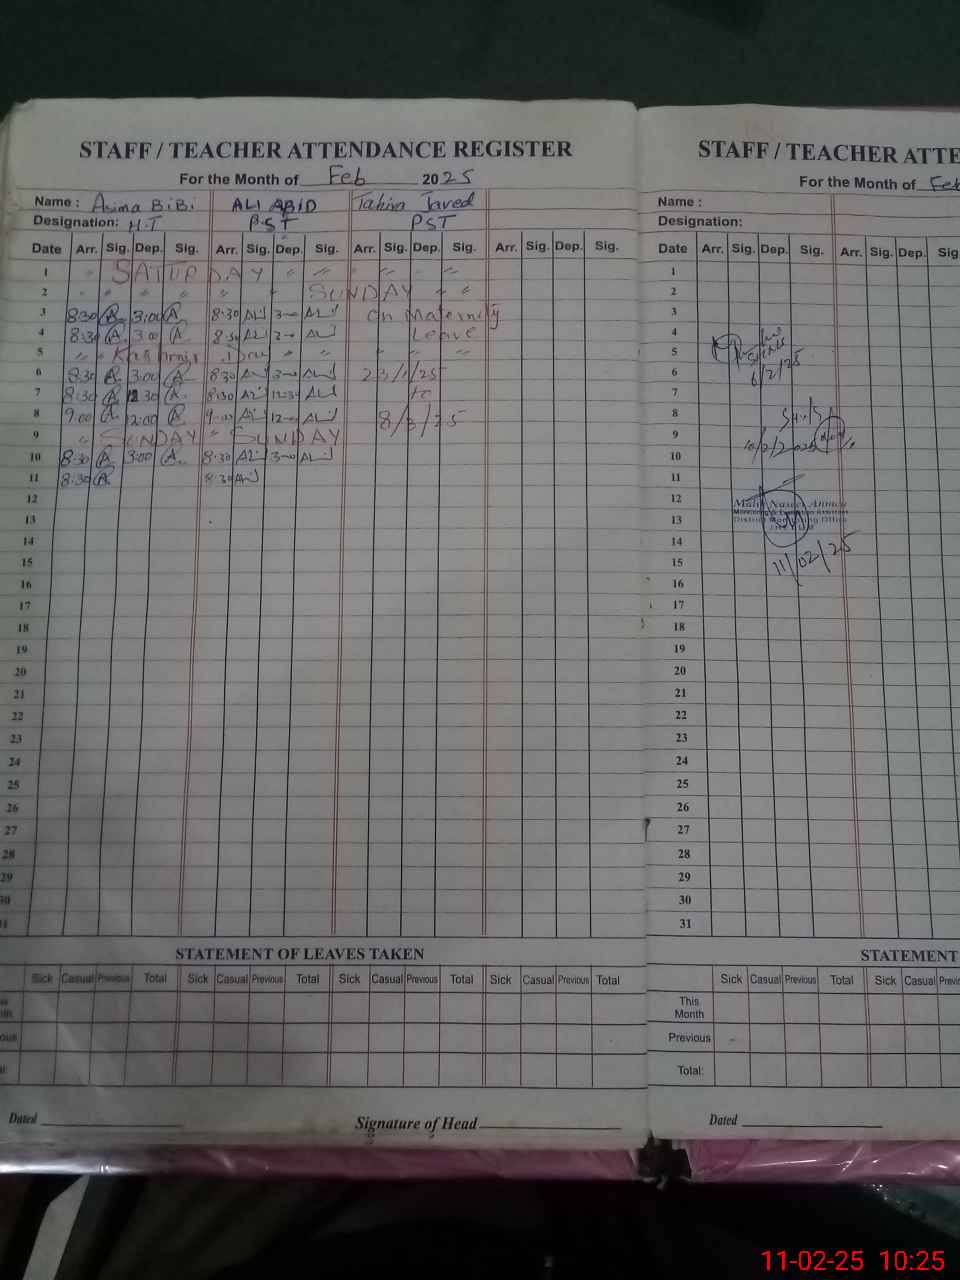 STAFF / TEACHER ATTENDANCE REGISTER
For the Month of Feb 2025
Name : Asima BiBi ALI ABID Tahira Javed
Designation: H.T PST PST
Date Arr. Sig. Dep. Sig. Arr. Sig. Dep. Sig. Arr. Sig. Dep. Sig. Arr. Sig. Dep. Sig.
1 " SATURDAY " " " " "
2 " " " " " " SUNDAY " "
3 8:30 A 3:00 A 8:30 ALI 3-00 ALI On Maternity
4 8:30 A 3:00 A 8:30 ALI 3-00 ALI Leave
5 " " Kashmir Day " " " " "
6 8:30 A 3:00 A 8:30 ALI 3-00 ALI 23/1/25
7 8:30 A 12:30 A 8:30 ALI 12:30 ALI to
8 9:00 A 12:00 A 9:00 ALI 12-00 ALI 8/3/25
9 " SUNDAY " SUNDAY
10 8:30 A 3:00 A 8:30 ALI 3-00 ALI
11 8:30 A 8:30 ALI
12
13
14
15
16
17
18
19
20
21
22
23
24
25
26
27
28
29
30
STATEMENT OF LEAVES TAKEN
Sick Casual Previous Total Sick Casual Previous Total Sick Casual Previous Total Sick Casual Previous Total
Dated
Signature of Head
STAFF / TEACHER ATTE
For the Month of Feb
Name :
Designation:
Date Arr. Sig. Dep. Sig. Arr. Sig. Dep. Sig
1
2
3
4
5
6 6/2/25
7
8
9 10/2/2025
10
11
12
13 District Monitoring Office
14
15 11/02/25
16
17
18
19
20
21
22
23
24
25
26
27
28
29
30
31
STATEMENT
Sick Casual Previous Total Sick Casual
This Month
Previous
Total:
Dated
11-02-25 10:25